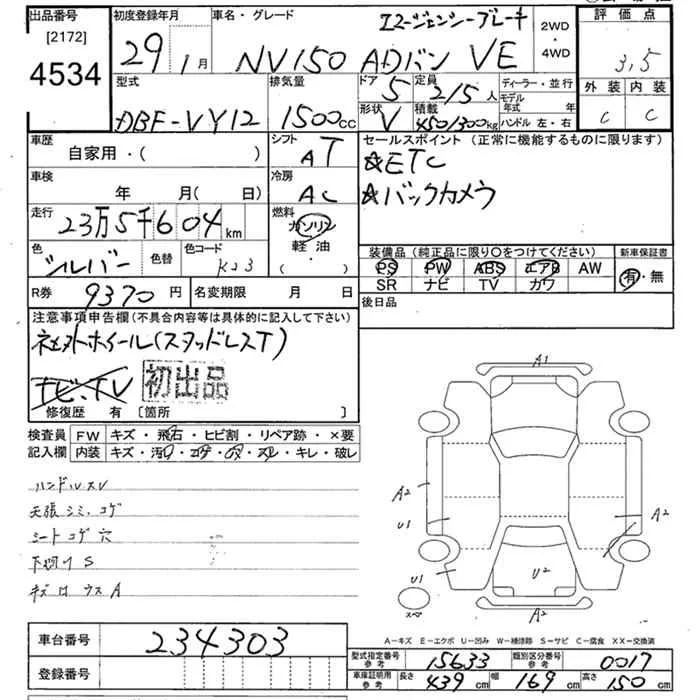 出品番号
[2172]
4534
初度登録年月
29年 1月
車名・グレード
エマージェンシーブレーキ
NV150 ADバン VE
2WD
・
4WD
評価点
3.5
外装 内装
C C
型式
DBF-VY12
排気量
1500cc
ドア
5
定員
2/5人
形状
V
積載
450/300kg
ディーラー・並行
モデル年式 年
ハンドル 左・右
車歴
自家用・( )
シフト
AT
セールスポイント(正常に機能するものに限ります)
☆ETC
☆バックカメラ
車検
年 月( 日)
冷房
AC
走行
23万5千604km
燃料
ガソリン
軽油
・( )
色
シルバー
色替
色コード
K23
装備品(純正品に限り○をつけてください)
PS PW ABS エアB AW
SR ナビ TV カワ
新車保証書
有・無
R券
9370円
名変期限 月 日
後日品
注意事項申告欄(不具合内容等は具体的に記入して下さい)
社外ホイール(スタッドレスT)
ナビ、TV
初出品
修復歴 有[箇所 ]
検査員記入欄
FW キズ・飛石・ヒビ割・リペア跡・×要
内装 キズ・汚れ・コゲ・穴・スレ・キレ・破レ
ハンドルスレ
天張シミ、コゲ
シートコゲ穴
下廻りS
A1
A2
U1
A2
U1
U2
A2
スペ
A-キズ E-エクボ U-凹み W-補修跡 S-サビ C-腐食 XX-交換済
車台番号
234303
登録番号
型式指定番号 参考
15633
類別区分番号 参考
0017
車庫証明用 参考
長さ 439cm
幅 169cm
高さ 150cm